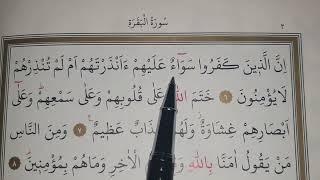 سُورَةُ الْبَقَرَةِ ٢
اِنَّ الَّذٖينَ كَفَرُوا سَوَٓاءٌ عَلَيْهِمْ ءَاَنْذَرْتَهُمْ اَمْ لَمْ تُنْذِرْهُمْ
لَا يُؤْمِنُونَ ٦ خَتَمَ اللّٰهُ عَلٰى قُلُوبِهِمْ وَعَلٰى سَمْعِهِمْ وَعَلٰٓى
اَبْصَارِهِمْ غِشَاوَةٌ وَلَهُمْ عَذَابٌ عَظٖيمٌ ٧ وَمِنَ النَّاسِ
مَنْ يَقُولُ اٰمَنَّا بِاللّٰهِ وَبِالْيَوْمِ الْاٰخِرِ وَمَا هُمْ بِمُؤْمِنٖينَ ٨